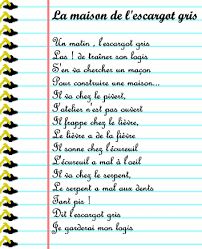 La maison de l'escargot gris
Un matin, l'escargot gris
Las ! de traîner son logis
S'en va chercher un maçon
Pour construire une maison...
Il va chez le pivert,
L'atelier n'est pas ouvert
Il frappe chez le lièvre,
Le lièvre a de la fièvre
Il sonne chez l'écureuil
L'écureuil a mal à l'oeil
Il va chez le serpent,
Le serpent a mal aux dents
Tant pis !
Dit l'escargot gris
Je garderai mon logis